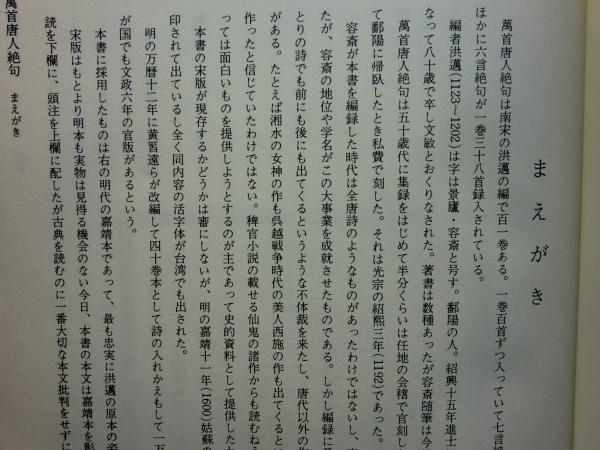 まえがき
萬首唐人絶句は南宋の洪邁の編で百一巻ある。一巻百首ずつ入っていて七言絶
ほかに六言絶句が一巻三十八首録入されている。
編者洪邁(1123〜1202)は字は景廬・容斎と号す。鄱陽の人。紹興十五年進士
なって八十歳で卒し文敏とおくりなされた。著書は数種あったが容斎随筆は今
萬首唐人絶句は五十歳代に集録をはじめて半分くらいは任地の会稽で官刻し
て鄱陽に帰臥したとき私費で刻した。それは光宗の紹熙三年(1192)であった。
容斎が本書を編録した時代は全唐詩のようなものがあったわけではないし、
たが、容斎の地位や学名がこの大事業を成就させたものである。しかし編録に
とりの詩でも前にも後にも出てくるというような不体裁を来たし、唐代以外の
がある。たとえば湘水の女神の作も呉越戦争時代の美人西施の作も出てくると
作ったと信じていたわけではない。稗官小説の載せる仙鬼の諸作からも読むねう
っては面白いものを提供しようとするのが主であって史的資料として提供した
本書の宋版が現存するかどうかは審にしないが、明の嘉靖十一年(1600)姑蘇の
印されて出ているし全く同内容の活字体が台湾でも出された。
明の万暦十二年に黄習遠らが改編して四十巻本として詩の入れかえもして一万
が国でも文政六年の官版があるという。
本書に採用したものは右の明代の嘉靖本であって、最も忠実に洪邁の原本の姿
宋版はもとより明本も実物は見得る機会のない今日、本書の本文は嘉靖本を影
読を下欄に、頭注を上欄に配したが古典を読むのに一番大切な本文批判をせずに
萬首唐人絶句　まえがき